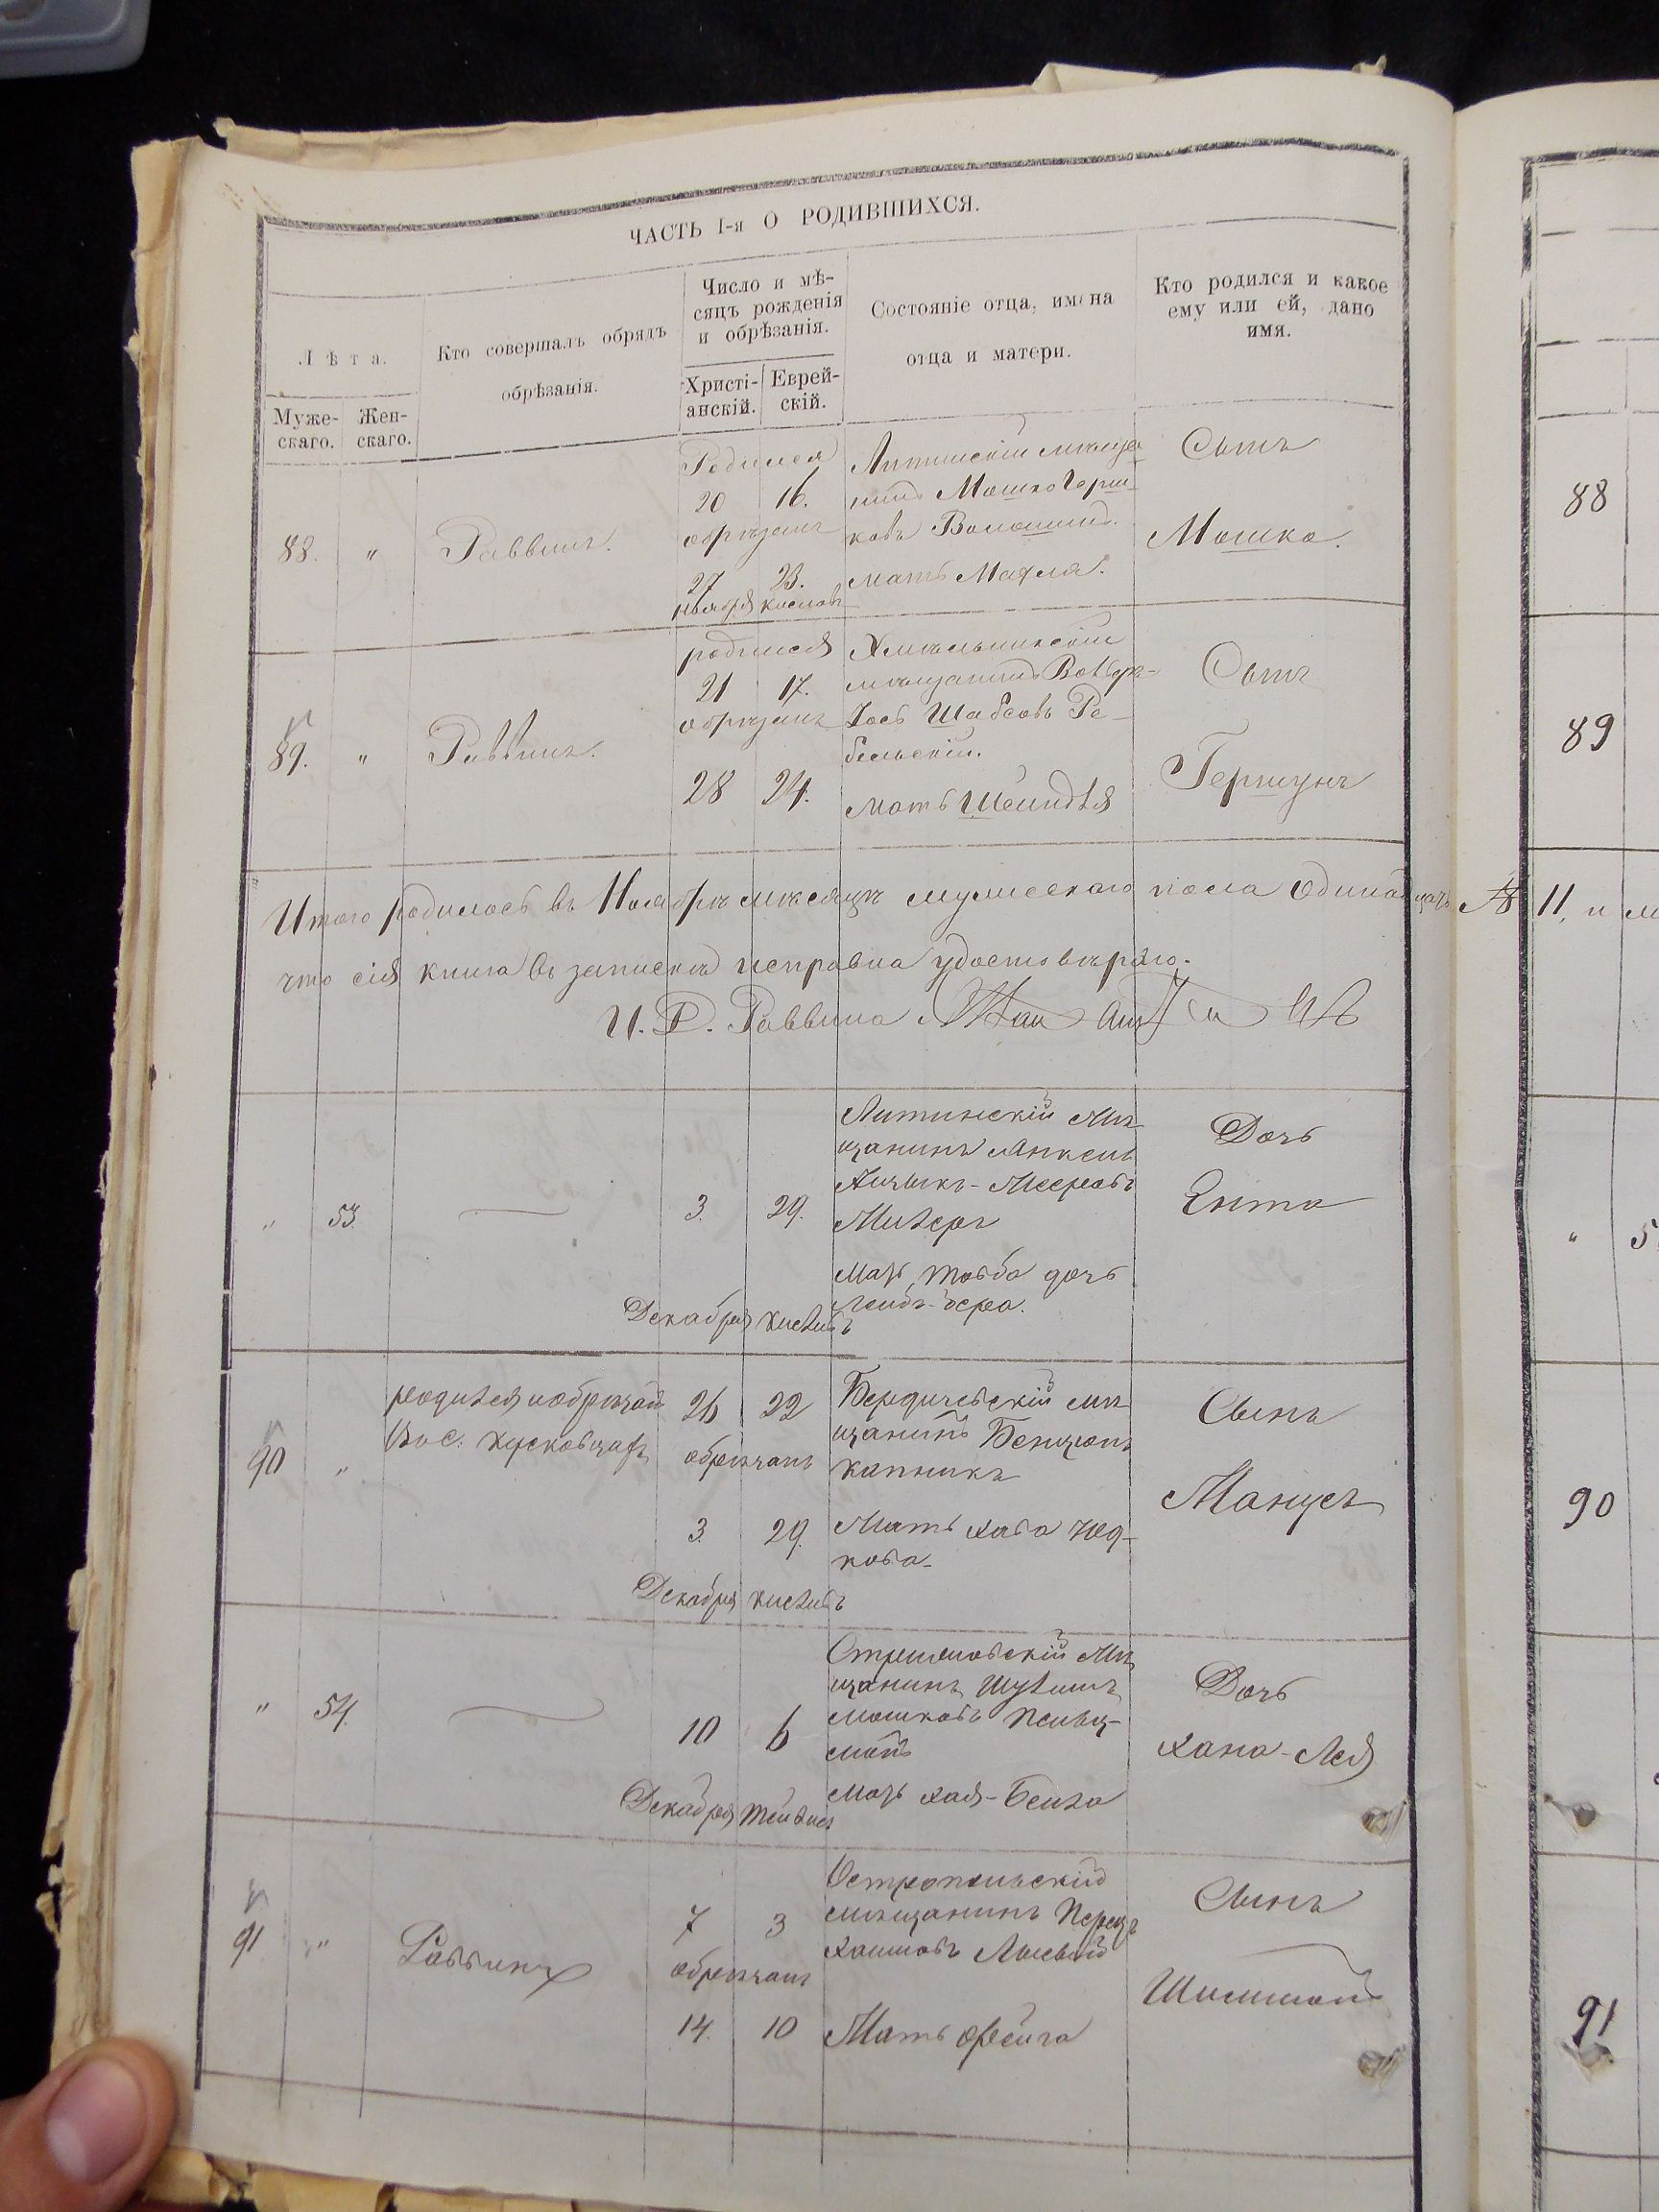 ЧАСТЬ I-я О РОДИВШИХСЯ.
Лѣта.
Муже-
скаго.
Жен-
скаго.
Кто совершалъ обрядъ
обрѣзанія.
Число и мѣ-
сяцъ рожденія
и обрѣзанія.
Христі-
анскій.
Еврей-
скій.
Состояніе отца, имена
отца и матери.
Кто родился и какое
ему или ей, дано
имя.
88. " Раввинъ.
Родился
20 16.
обрѣзанъ
27 23.
ноября кислевъ
Литинскій мѣща
нинъ Мошко Герш-
ковъ Волошинъ.
мать Махля.
Сынъ
Мошко.
88
89. " Раввинъ.
родился
21 17.
обрѣзанъ
28 24.
Хмѣльникскій
мѣщанинъ
Іось Шабсовъ Ре-
бельскій.
мать Шейндля
Сынъ
Гершунъ
89
Итого родилось въ Ноябрѣ мѣсяцѣ мужескаго пола Одинадцать 11, и
что сія книга въ запискѣ исправна удостовѣряю.
И. Д. Раввина
" 53. 3. 29.
Декабря Кислевъ
Литинскій Мѣ-
щанинъ Анкель
Ицыкъ-Мееровъ
Мать Товба дочь
Лейбъ-Бера.
Дочь
Ента
" 5
90 "
родился и обрѣзанъ
26 22
обрѣзанъ
3. 29.
Декабря Кислевъ
Бердичевскій мѣ-
щанинъ Бенціонъ
Капникъ
Мать Хава
кова
Сынъ
Манусъ
90
" 54. 10 6
Декабря Тейвесъ
мѣ
щанинъ Шулимъ
Мошковъ
Мать Хая-Бейла
Дочь
Хана-Лея
91 " Раввинъ
7 3
обрѣзанъ
14. 10
Остропольскій
мѣщанинъ Перецъ
Хаимовъ
Мать Фейга
Сынъ
Шимшонъ
91